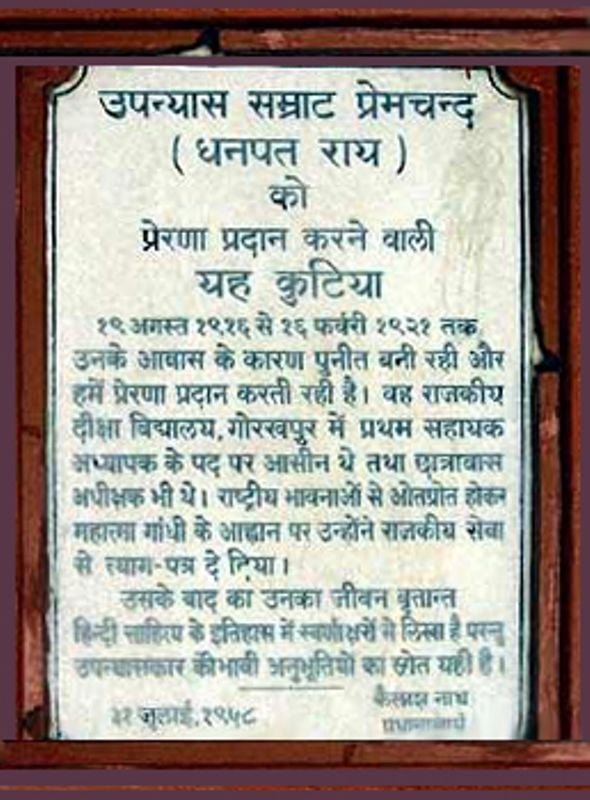 उपन्यास सम्राट प्रेमचन्द
( धनपत राय )
को
प्रेरणा प्रदान करने वाली
यह कुटिया
१९ अगस्त १९१६ से १६ फर्वरी १९२१ तक
उनके आवास के कारण पुनीत बनी रही और
हमें प्रेरणा प्रदान करती रही है। वह राजकीय
दीक्षा विद्यालय, गोरखपुर में प्रथम सहायक
अध्यापक के पद पर आसीन थे तथा छात्रावास
अधीक्षक भी थे। राष्ट्रीय भावनाओं से ओतप्रोत होकर
महात्मा गांधी के आह्वान पर उन्होंने राजकीय सेवा
से त्याग-पत्र दे दिया।
उसके बाद का उनका जीवन वृतान्त
हिन्दी साहित्य के इतिहास में स्वर्णाक्षरों से लिखा है परन्तु
उपन्यासकार की भावी अनुभूतियों का स्रोत यही है।
३१ जुलाई, १९५८
कैलाश नाथ
प्रधानाचार्य